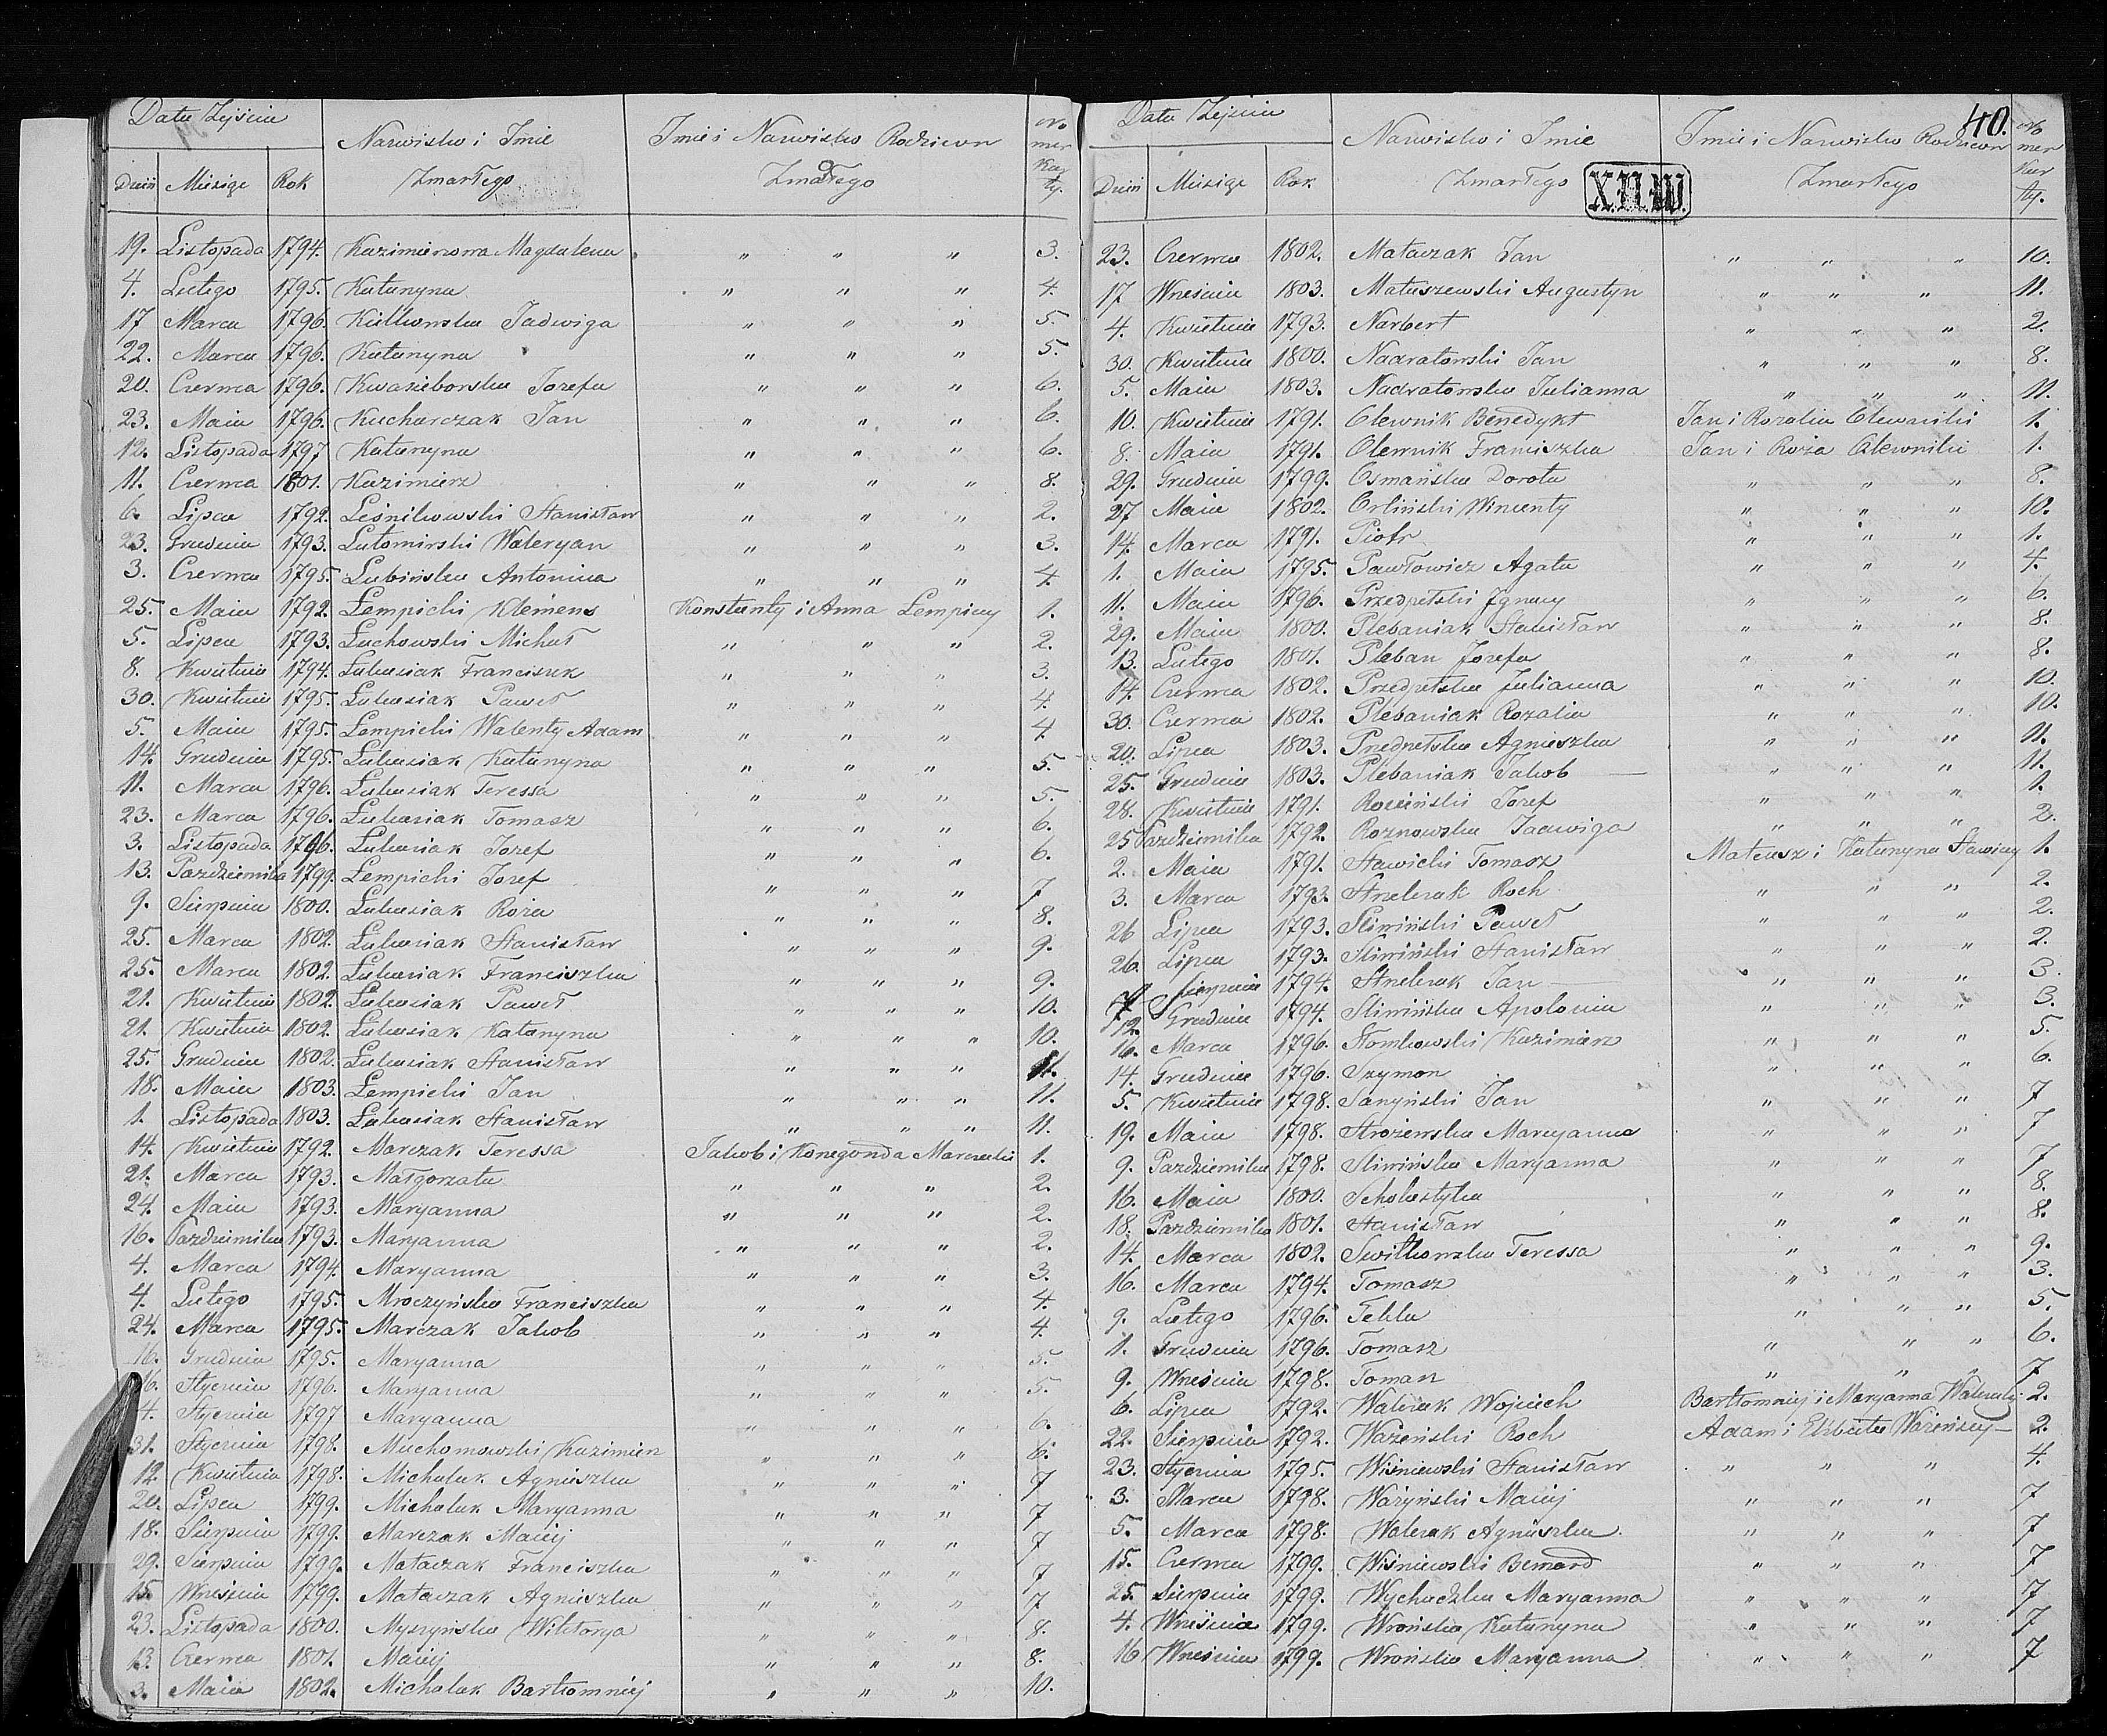 Data Zejścia
Nazwisko i Imie Zmarłego
Imie i Nazwisko Rodziców Zmarłego
No mer Kar ty.
Dzień Miesiąc Rok
19. Listopada 1794. Kazimierzowa Magdalena " " " 3.
4. Lutego 1795. Katarzyna " " " 4.
17 Marca 1796. Kulkowska Jadwiga " " " 5.
22. Marca 1796. Katarzyna " " " 5.
20. Czerwca 1796. Kwasieborska Jozefa " " " 6.
23. Maia 1796. Kucharczak Jan " " " 6.
12. Listopada 1797 Katarzyna " " " 6.
11. Czerwca 1801. Kazimierz " " " 8.
6. Lipca 1792. Leśnikowski Stanisław " " " 2.
23. Grudnia 1793. Lutomirski Waleryan " " " 3.
3. Czerwca 1795. Lubińska Antonina " " " 4.
25. Maia 1792. Łempicki Klemens Konstanty i Anna Łempiccy 1.
5. Lipca 1793. Łuchowski Michał " " " 2.
8. Kwietnia 1794. Łukasiak Franciszek " " " 3.
30. Kwietnia 1795. Łukasiak Paweł " " " 4.
5. Maia 1795. Łempicki Walenty Adam " " " 4.
14. Grudnia 1795. Łukasiak Katarzyna " " " 5.
11. Marca 1796. Łukasiak Teressa " " " 5.
23. Marca 1796. Łukasiak Tomasz " " " 6.
3. Listopada 1796. Łukasiak Jozef " " " 6.
13. Pazdziernika 1799. Łempicki Jozef " " " 7
9. Sierpnia 1800. Łukasiak Roża " " " 8.
25. Marca 1802. Łukasiak Stanisław " " " 9.
25. Marca 1802. Łukasiak Franciszka " " " 9.
21. Kwietnia 1802. Łukasiak Paweł " " " 10.
21. Kwietnia 1802. Łukasiak Katarzyna " " " 10.
25. Grudnia 1802. Łukasiak Stanisław " " " 11.
18. Maia 1803. Łempicki Jan " " " 11.
1. Listopada 1803. Łukasiak Stanisław " " " 11.
14. Kwietnia 1792. Marczak Teressa Jakob i Konegonda Marczaki 1.
21. Marca 1793. Małgorzata " " " 2.
24. Maia 1793. Maryanna " " " 2.
16. Pazdziernika 1793. Maryanna " " " 2.
4. Marca 1794. Maryanna " " " 3.
4. Lutego 1795. Mroczyńska Franciszka " " " 4.
24. Marca 1795. Marczak Jakob " " " 4.
16. Grudnia 1795. Maryanna " " " 5.
16. Stycznia 1796. Maryanna " " " 5.
4. Stycznia 1797 Maryanna " " " 6.
31. Stycznia 1798. Muchomowski Kazimierz " " " 6.
12. Kwietnia 1798. Michalak Agnieszka " " " 7
20. Lipca 1799. Michalak Maryanna " " " 7
18. Sierpnia 1799. Marczak Maciej " " " 7
29. Sierpnia 1799. Mataczak Franciszka " " " 7
15. Wrześnie 1799. Mataczak Agnieszka " " " 7
23. Listopada 1800. Myszyńska Wiktorya " " " 8.
13. Czerwca 1801. Maciej " " " 8.
3. Maia 1802. Michalak Bartłomniej " " " 10.
40.
Data Zejścia
Nazwisko i Imie Zmarłego
XLIII.
Imie i Nazwisko Rodziców Zmarłego
No mer Kar ty.
Dzień Miesiąc Rok
23. Czerwca 1802. Mataczak Jan " " " 10.
17 Wrześnie 1803. Matuszewski Augustyn " " " 11.
4. Kwietnia 1793. Narbert " " " 2.
30. Kwietnia 1800. Nadratowski Jan " " " 8.
5. Maia 1803. Nadratowska Julianna " " " 11.
10. Kwietnia 1791. Olewnik Benedykt Jan i Rozalia Olewniki 1.
8. Maia 1791. Olewnik Franciszka Jan i Roża Olewniki 1.
29. Grudnia 1799. Osmańska Dorota " " " 8.
27 Maia 1802. Orliński Wincenty " " " 10.
14. Marca 1791. Piotr " " " 1.
1. Maia 1795. Pawłowicz Agata " " " 4.
11. Maia 1796. Przedpełski Jgnacy " " " 6.
29. Maia 1800. Plebaniak Stanisław " " " 8.
13. Lutego 1801. Pleban Jozefa " " " 8.
14. Czerwca 1802. Przedpełska Julianna " " " 10.
30. Czerwca 1802. Plebaniak Rozalia " " " 10.
20. Lipca 1803. Przedpełska Agnieszka " " " 11.
25. Grudnia 1803. Plebaniak Jakob " " " 11.
28. Kwietnia 1791. Rociński Jozef " " " 1.
25 Pazdziernika 1792. Roznowska Jadwiga " " " 2.
2. Maia 1791. Sławicki Tomasz Mateusz i Katarzyna Sławiccy 1.
3. Marca 1793. Strzelczak Roch " " " 2.
26 Lipca 1793. Sliwiński Paweł " " " 2.
26. Lipca 1793. Sliwiński Stanisław " " " 2.
7 Sierpnia 1794. Strzelczak Jan " " " 3.
12. Grudnia 1794. Sliwińska Apolonia " " " 3.
16. Marca 1796. Słomkowski Kazimierz " " " 5.
14. Grudnia 1796. Szymon " " " 6.
5. Kwietnia 1798. Saryński Jan " " " 7
19. Maia 1798. Strożewska Maryanna " " " 7
9. Pazdziernika 1798. Sliwińska Maryanna " " " 7
16. Maia 1800. Scholastyka " " " 8.
18. Pazdziernika 1801. Stanisław " " " 8.
14. Marca 1802. Switkowska Teressa " " " 9.
16. Marca 1794. Tomasz " " " 3.
9. Lutego 1796. Tekla " " " 5.
1. Grudnia 1796. Tomasz " " " 6.
9. Wrześnie 1798. Toman " " " 7
6. Lipca 1792. Walczak Wojciech Bartłomniej i Maryanna Walczaki 2.
22. Sierpnia 1792. Ważeński Roch Adam i Elżbieta Ważeńscy 2.
23. Stycznia 1795. Wiśniewski Stanisław " " " 4.
3. Marca 1798. Ważyński Maciej " " " 7
5. Marca 1798. Walczak Agnieszka " " " 7
15. Czerwca 1799. Wiśniewski Bernard " " " 7
25. Sierpnia 1799. Wychudzka Maryanna " " " 7
4. Wrześnie 1799. Wrońska Katarzyna " " " 7
16 Wrześnie 1799. Wrońska Maryanna " " " 7